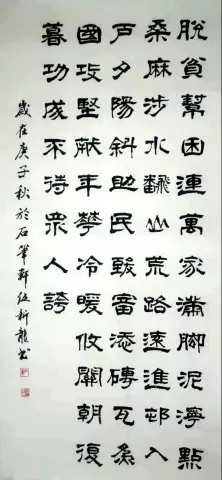 脫貧幫困連萬家滿腳泥濘點
桑麻涉水翻山荒路遠進邨入
戶夕陽斜助民致富添磚瓦為
國攻堅献年華冷暖攸關朝復
暮功成不待眾人誇
歲在庚子秋於石筆軒伍新龍书